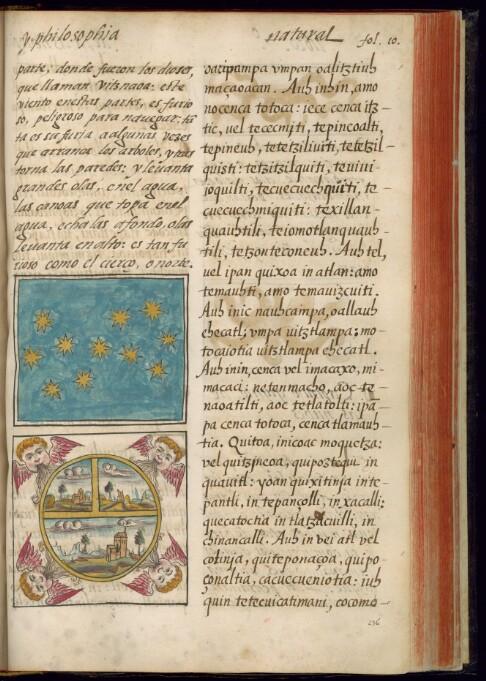 y philosophia
natural
fol. 10.
parte, donde fueron los dioses,
que llaman Vitznaoa: este
viento enestas partes, es furio
so, peligroso para nauegar, tā
ta es su furia a algunas vezes
que arranca los arboles, y tras
torna las paredes, y leuanta
grandes olas, enel agua,
las canoas que topa enel
agua, echa las afondo, olas
leuanta en alto: es tan fu
rioso como el cierço, o norte.
umpan oalitztiuh
maçaoacan. Auh inhin, amo
nocenca totoca: iece cenca itz-
tic, uel tececmiti, tepineoalti,
tepineuh, tetetziliuiti, tetetzil-
quisti: tetzitzilquiti, teuiui
ioquilti, tecuecuechquiti, te-
cuecuechmiquiti: texillan-
quauhtili, teiomotlanquauh-
tili, tetzonteconeuh. Auh tel,
uel ipan quixoa in atlan: amo
temauhti, amo temauizcuiti.
Auh inic nauhcampa, oallauh
ehecatl; umpa uitztlampa; mo-
tocaiotia uitztlampa ehecatl.
Auh inin, cenca uel imacaxo, mi-
macaci: netenmacho, aoc te-
naoatilti, aoc tetlatolti: ipā-
pa cenca totoca, cenca tlamauh-
tia. Quitoa, inicoac moquetza:
uel quitzineoa, quipoztequi in
quauitl: yoan quixitinia in te-
pantli, in tepançolli, in xacalli:
quecatoctia in tlatzacuilli, in
chinancalli. Auh in uei atl uel
colinia, quiteponaçoa, quipo-
çonaltia, cacuecueniotia: iuh
quin tetecuicatimani, cocomo-
236